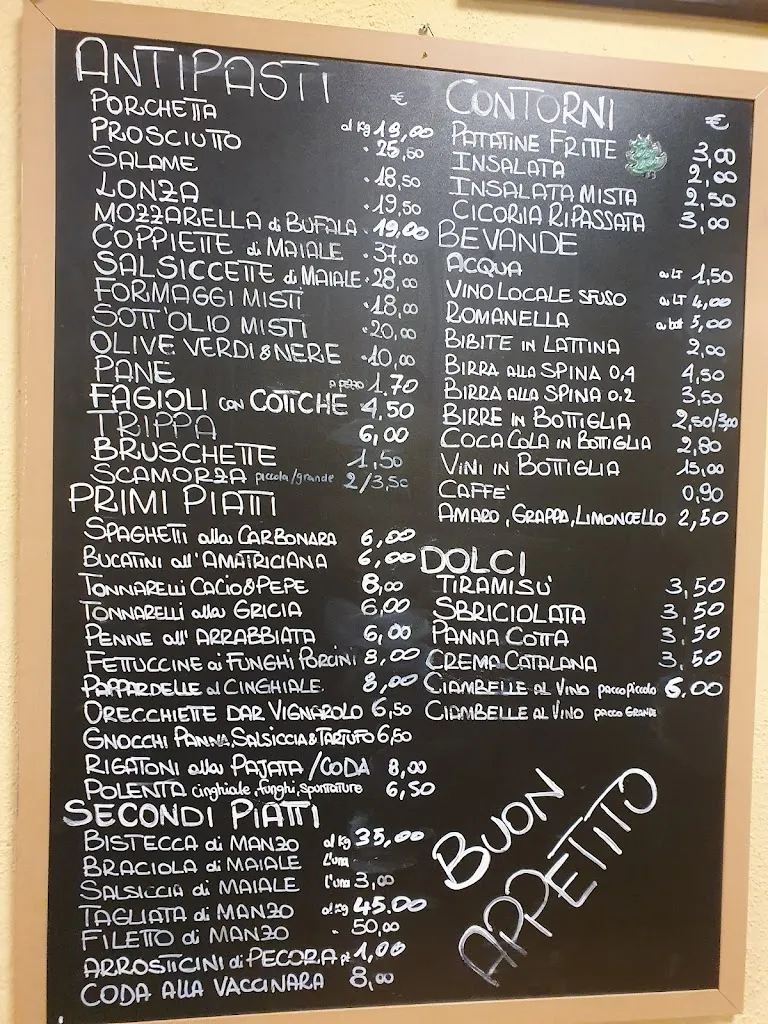 ANTIPASTI €
PORCHETTA al Kg 19,00
PROSCIUTTO " 25,50
SALAME " 18,50
LONZA " 19,50
MOZZARELLA di BUFALA " 19,00
COPPIETTE di MAIALE " 37,00
SALSICCETTE di MAIALE " 28,00
FORMAGGI MISTI " 18,00
SOTT'OLIO MISTI " 20,00
OLIVE VERDI & NERE " 10,00
PANE a pezzo 1.70
FAGIOLI con COTICHE 4,50
TRIPPA 6,00
BRUSCHETTE 1,50
SCAMORZA piccola/grande 2/3,50
PRIMI PIATTI
SPAGHETTI alla CARBONARA 6,00
BUCATINI all'AMATRICIANA 6,00
TONNARELLI CACIO & PEPE 8,00
TONNARELLI alla GRICIA 6,00
PENNE all'ARRABBIATA 6,00
FETTUCCINE ai FUNGHI PORCINI 8,00
PAPPARDELLE al CINGHIALE 8,00
ORECCHIETTE DAR VIGNAROLO 6,50
GNOCCHI PANNA, SALSICCIA & TARTUFO 6,50
RIGATONI alla PAJATA/CODA 8,00
POLENTA cinghiale, funghi, spuntature 6,50
SECONDI PIATTI
BISTECCA di MANZO al Kg 35,00
BRACIOLA di MAIALE l'una
SALSICCIA di MAIALE l'una 3,00
TAGLIATA di MANZO al Kg 45.00
FILETTO di MANZO " 50,00
ARROSTICINI di PECORA pz 1,00
CODA ALLA VACCINARA 8,00
CONTORNI €
PATATINE FRITTE 3,00
INSALATA 2,00
INSALATA MISTA 2,50
CICORIA RIPASSATA 3,00
BEVANDE
ACQUA al LT 1,50
VINO LOCALE SFUSO al LT 4,00
ROMANELLA a bot 5,00
BIBITE IN LATTINA 2,00
BIRRA ALLA SPINA 0,4 4,50
BIRRA ALLA SPINA 0.2 3,50
BIRRE IN BOTTIGLIA 2,50/3,00
COCA COLA IN BOTTIGLIA 2,80
VINI IN BOTTIGLIA 15,00
CAFFE' 0,90
AMARO, GRAPPA, LIMONCELLO 2,50
DOLCI
TIRAMISU' 3,50
SBRICIOLATA 3,50
PANNA COTTA 3.50
CREMA CATALANA 3.50
CIAMBELLE AL VINO PACCO PICCOLO 6.00
CIAMBELLE AL VINO PACCO GRANDE
BUON
APPETITO